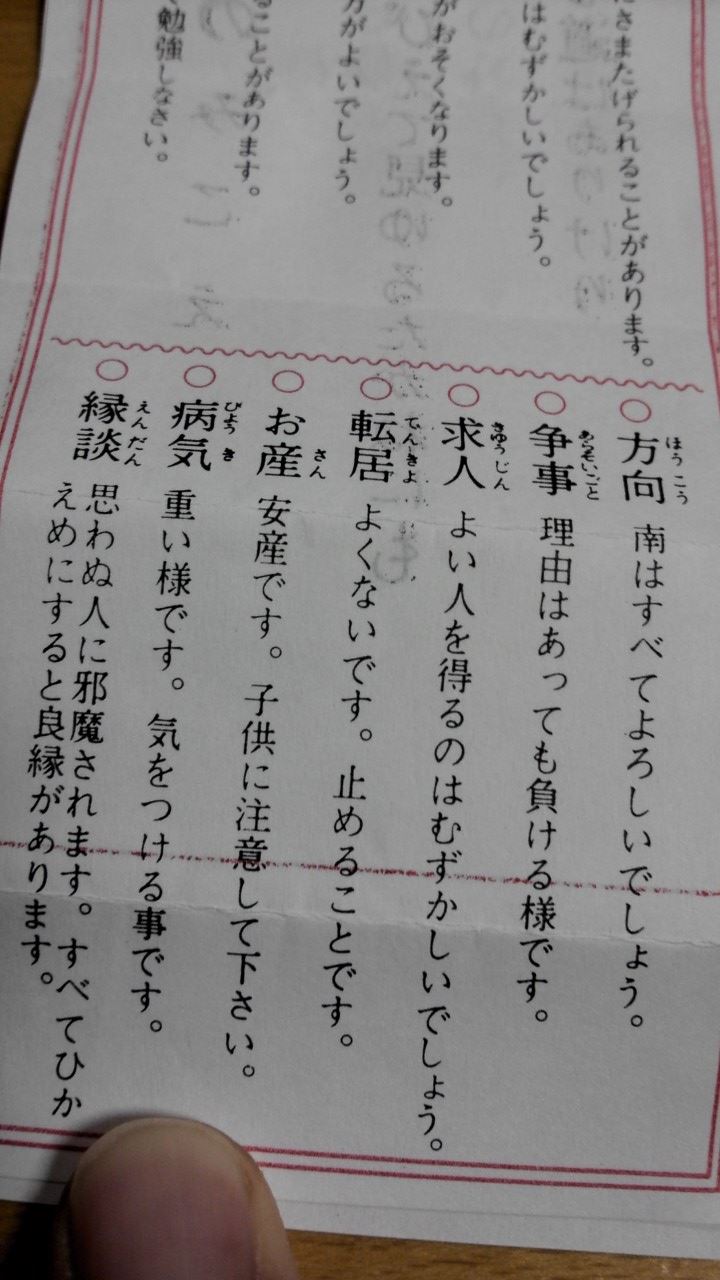 にさまたげられることがあります。
はむずかしいでしょう。
がおそくなります。
方がよいでしょう。
ることがあります。
勉強しなさい。
○方向 南はすべてよろしいでしょう。
ほうこう
○争事 理由はあっても負ける様です。
あらそいごと
○求人 よい人を得るのはむずかしいでしょう。
きゅうじん
○転居 よくないです。止めることです。
てんきょ
○お産 安産です。子供に注意して下さい。
さん
○病気 重い様です。気をつける事です。
びょうき
○縁談 思わぬ人に邪魔されます。すべてひか
えんだん
えめにすると良縁があります。